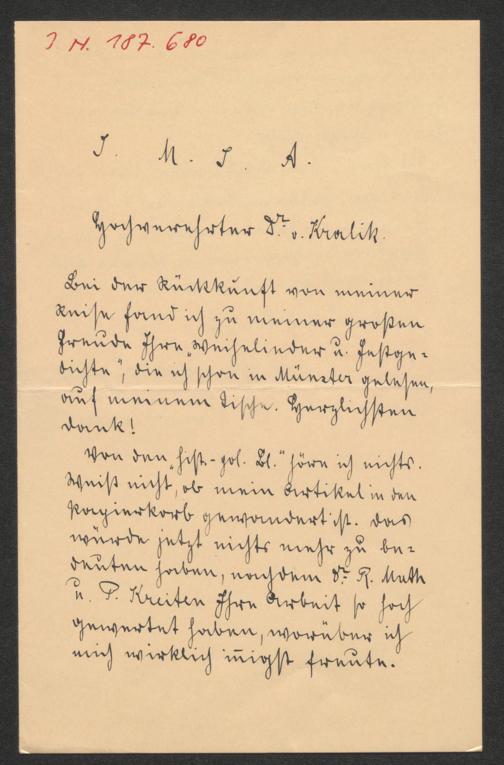 I. N. 187.680
J. M. J. A.
Hochverehrter Dr. v. Kralik.
Bei der Rückkunft von meiner
Reise fand ich zu meiner großen
Freude Ihre „Weihelieder u. Festge-
dichte", die ich schon in Münster gelesen,
auf meinem Tische. Herzlichsten
Dank!
Von den „hist.-pol. Bl." höre ich nichts.
Weiß nicht, ob mein Artikel in den
Papierkorb gewandert ist. Das
würde jetzt nichts mehr zu be-
deuten haben, nachdem Dr. R. Muth
u. P. Kreiten Ihre Arbeit so hoch
gewertet haben, worüber ich
mich wirklich innigst freute.